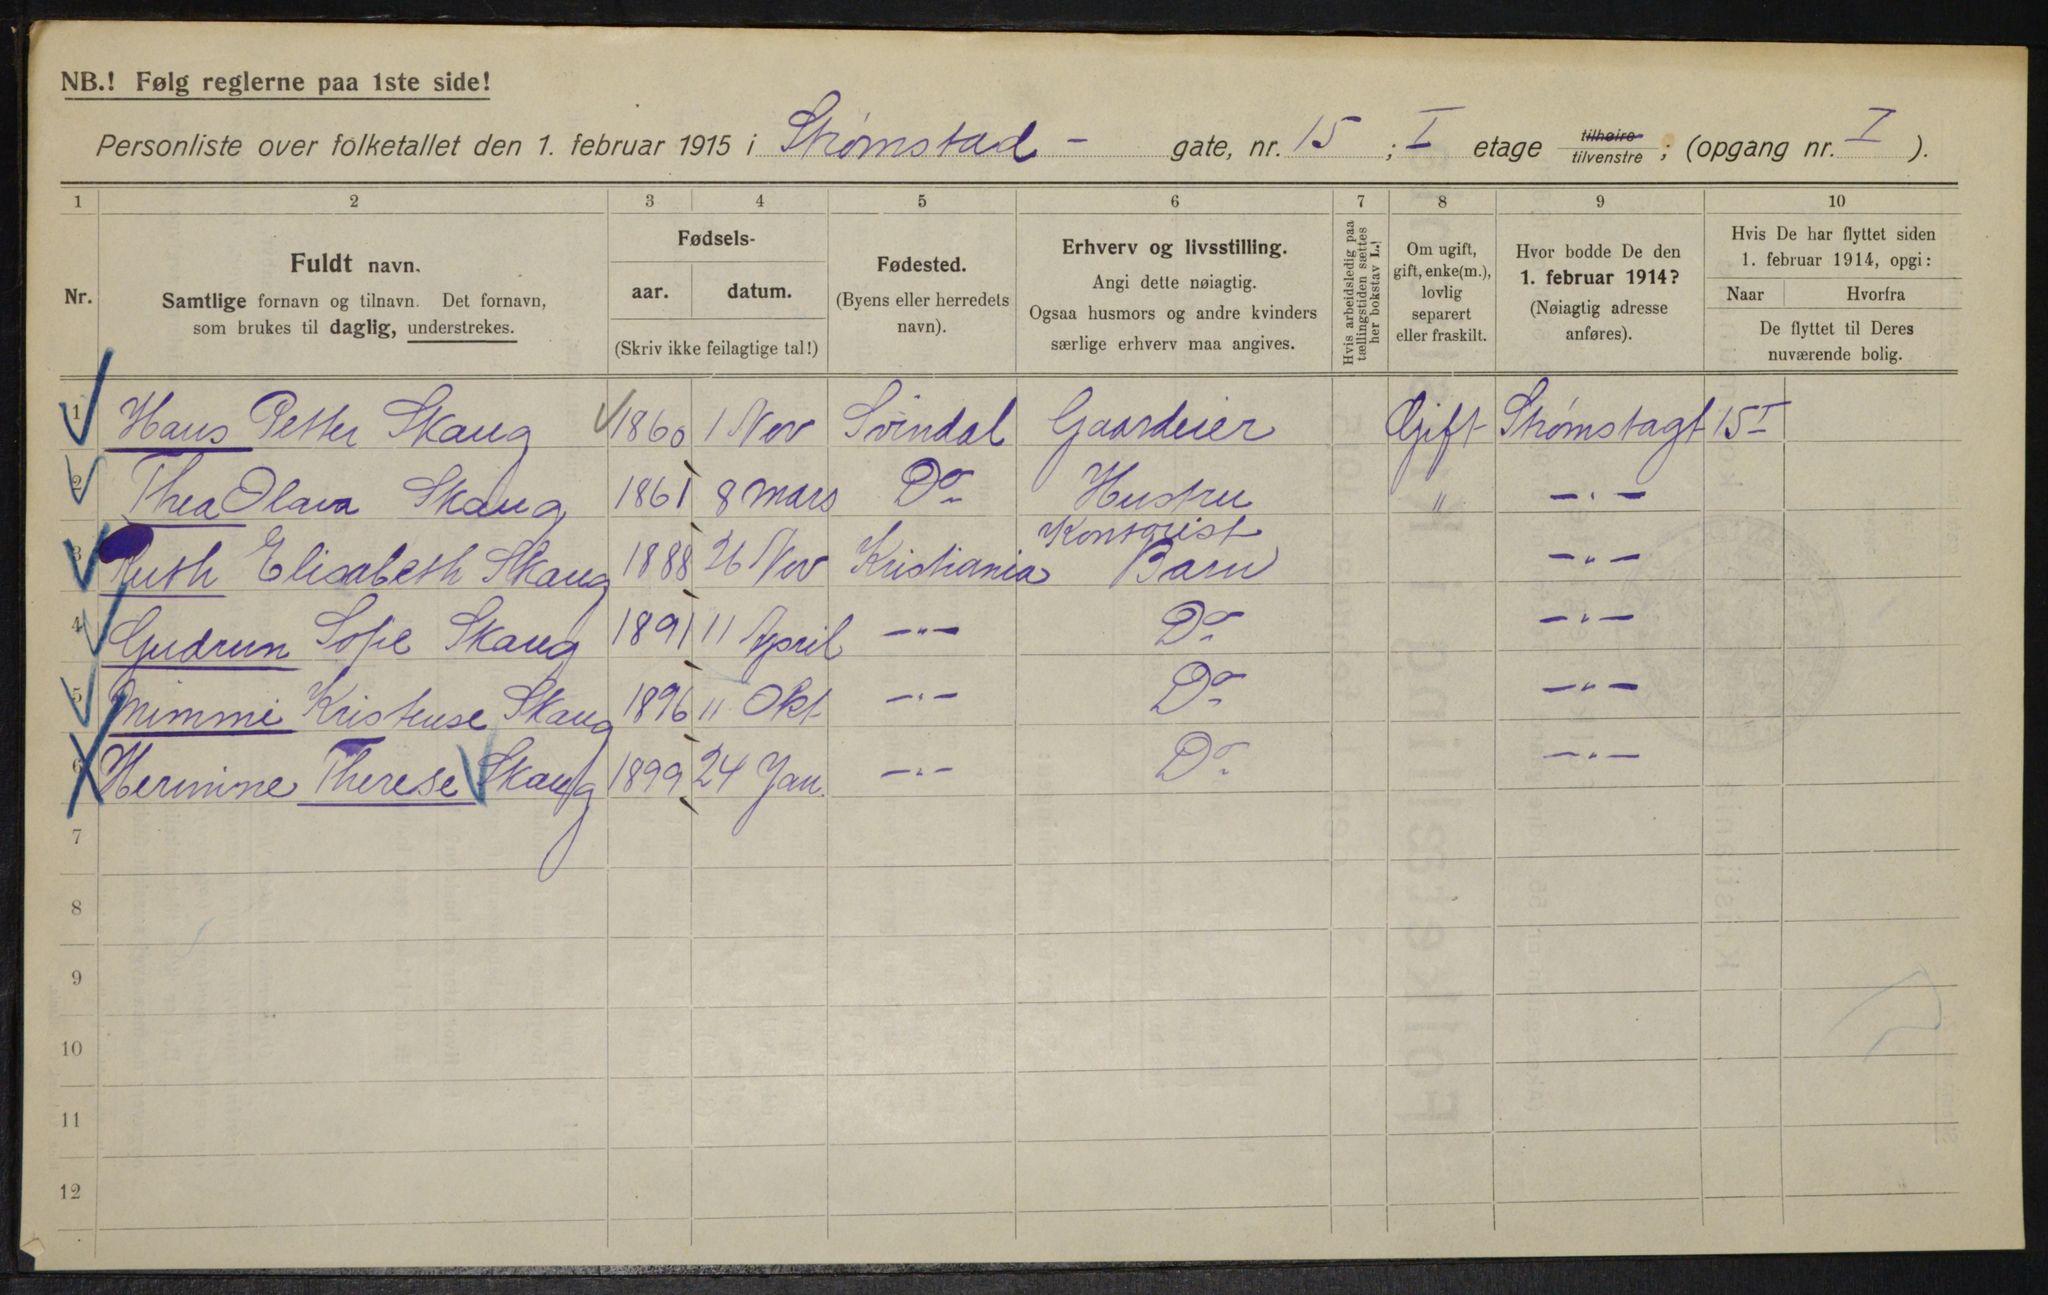 NB.! Følg reglerne paa 1ste side!
Personliste over folketallet den 1. februar 1915 i Strømstad - gate, nr. 15 ; I etage tilhøire tilvenstre ; (opgang nr. I ).
1 2 3 4 5 6 7 8 9 10
Nr.
Fuldt navn.
Samtlige fornavn og tilnavn. Det fornavn,
som brukes til daglig, understrekes.
Fødsels-
aar. datum.
(Skriv ikke feilagtige tal!)
Fødested.
(Byens eller herredets
navn).
Erhverv og livsstilling.
Angi dette nøiagtig.
Ogsaa husmors og andre kvinders
særlige erhverv maa angives.
Hvis arbeidsledig paa
tællingstiden sættes
her bokstav L.!
Om ugift,
gift, enke(m.),
lovlig
separert
eller fraskilt.
Hvor bodde De den
1. februar 1914?
(Nøiagtig adresse
anføres).
Hvis De har flyttet siden
1. februar 1914, opgi:
Naar Hvorfra
De flyttet til Deres
nuværende bolig.
1 Hans Petter Skaug 1860 1 Nov Svindal Gaardeier Gift Strømstagt 15 I
2 Thea Olava Skaug 1861 8 mars Do Hustru " -"-
Kontorist
3 Ruth Elisabeth Skaug 1888 26 Nov Kristiania Barn -"-
4 Gudrun Sofie Skaug 1891 11 April -"- Do -"-
5 Mimmi Kristense Skaug 1896 11 Okt -"- Do -"-
6 Hermine Therese Skaug 1899 24 Jan. -"- Do -"-
7
8
9
10
11
12